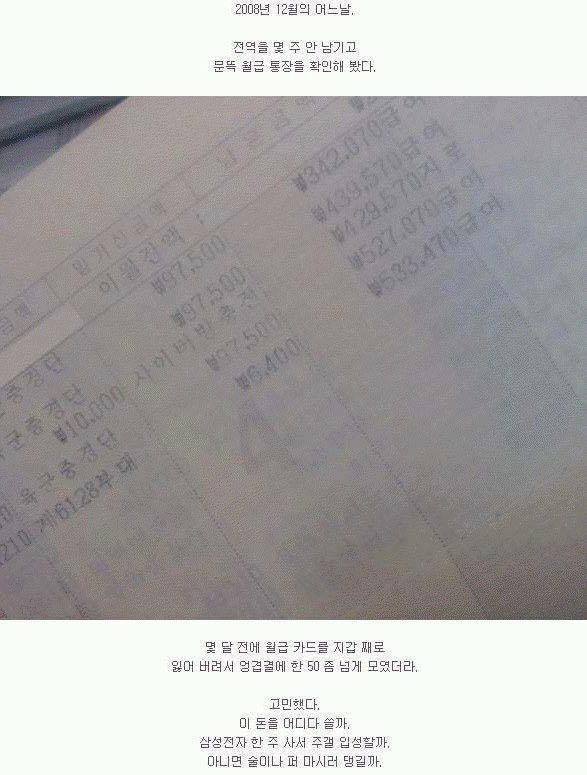 2008년 12월의 어느날.
전역을 몇 주 안 남기고
문뜩 월급 통장을 확인해 봤다.
금액 맡기신금액 남은금액
이월잔액 :
군중경단 ₩97,500 ₩342,070급여
육군중경단 ₩97,500 ₩439,570급여
₩10,000 ₩429,570지로
육군중경단 ₩97,500 ₩527,070급여
210 계6128부대 ₩6,400 ₩533,470급여
몇 달 전에 월급 카드를 지갑 째로
잃어 버려서 엉겁결에 한 50 좀 넘게 모였더라.
고민했다.
이 돈을 어디다 쓸까.
삼성전자 한 주 사서 주갤 입성할까.
아니면 술이나 퍼 마시러 댕길까.